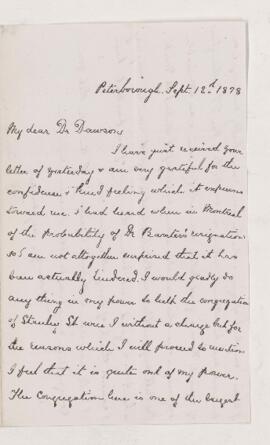 Peterborough. Sept. 12.d 1878
My dear Dr Dawson,
I have just received your
letter of yesterday & am very grateful for the
confidence & kind feeling which it expresses
toward me. I had heard when in Montreal
of the probability of Dr resignation
so I am not altogether surprised that it has
been actually tendered. I would gladly do
any thing in my power to help the congregation
of St were I without a charge but for
the reasons which I will proceed to mention
I feel that it is quite out of my power.
The Congregation here is one of the largest